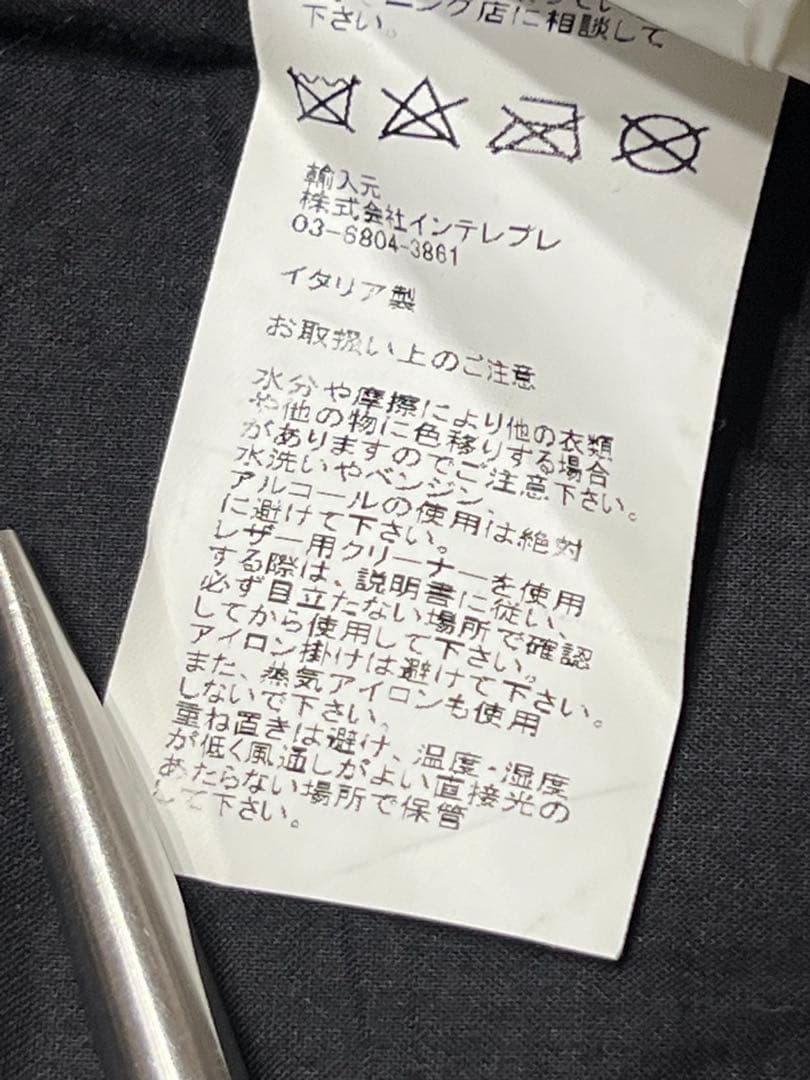 ーニング店に相談して
下さい。
輸入元
株式会社インテレプレ
03-6804-3861
イタリア製
お取扱い上のご注意
水分や摩擦により他の衣類
や他の物に色移りする場合
がありますのでご注意下さい。
水洗いやベンジン、
アルコールの使用は絶対
に避けて下さい。
レザー用クリーナーを使用
する際は、説明書に従い、
必ず目立たない場所で確認
してから使用して下さい。
アイロン掛けは避けて下さい。
また、蒸気アイロンも使用
しないで下さい。
重ね置きは避け、温度・湿度
が低く風通しがよい直接光の
あたらない場所で保管
して下さい。